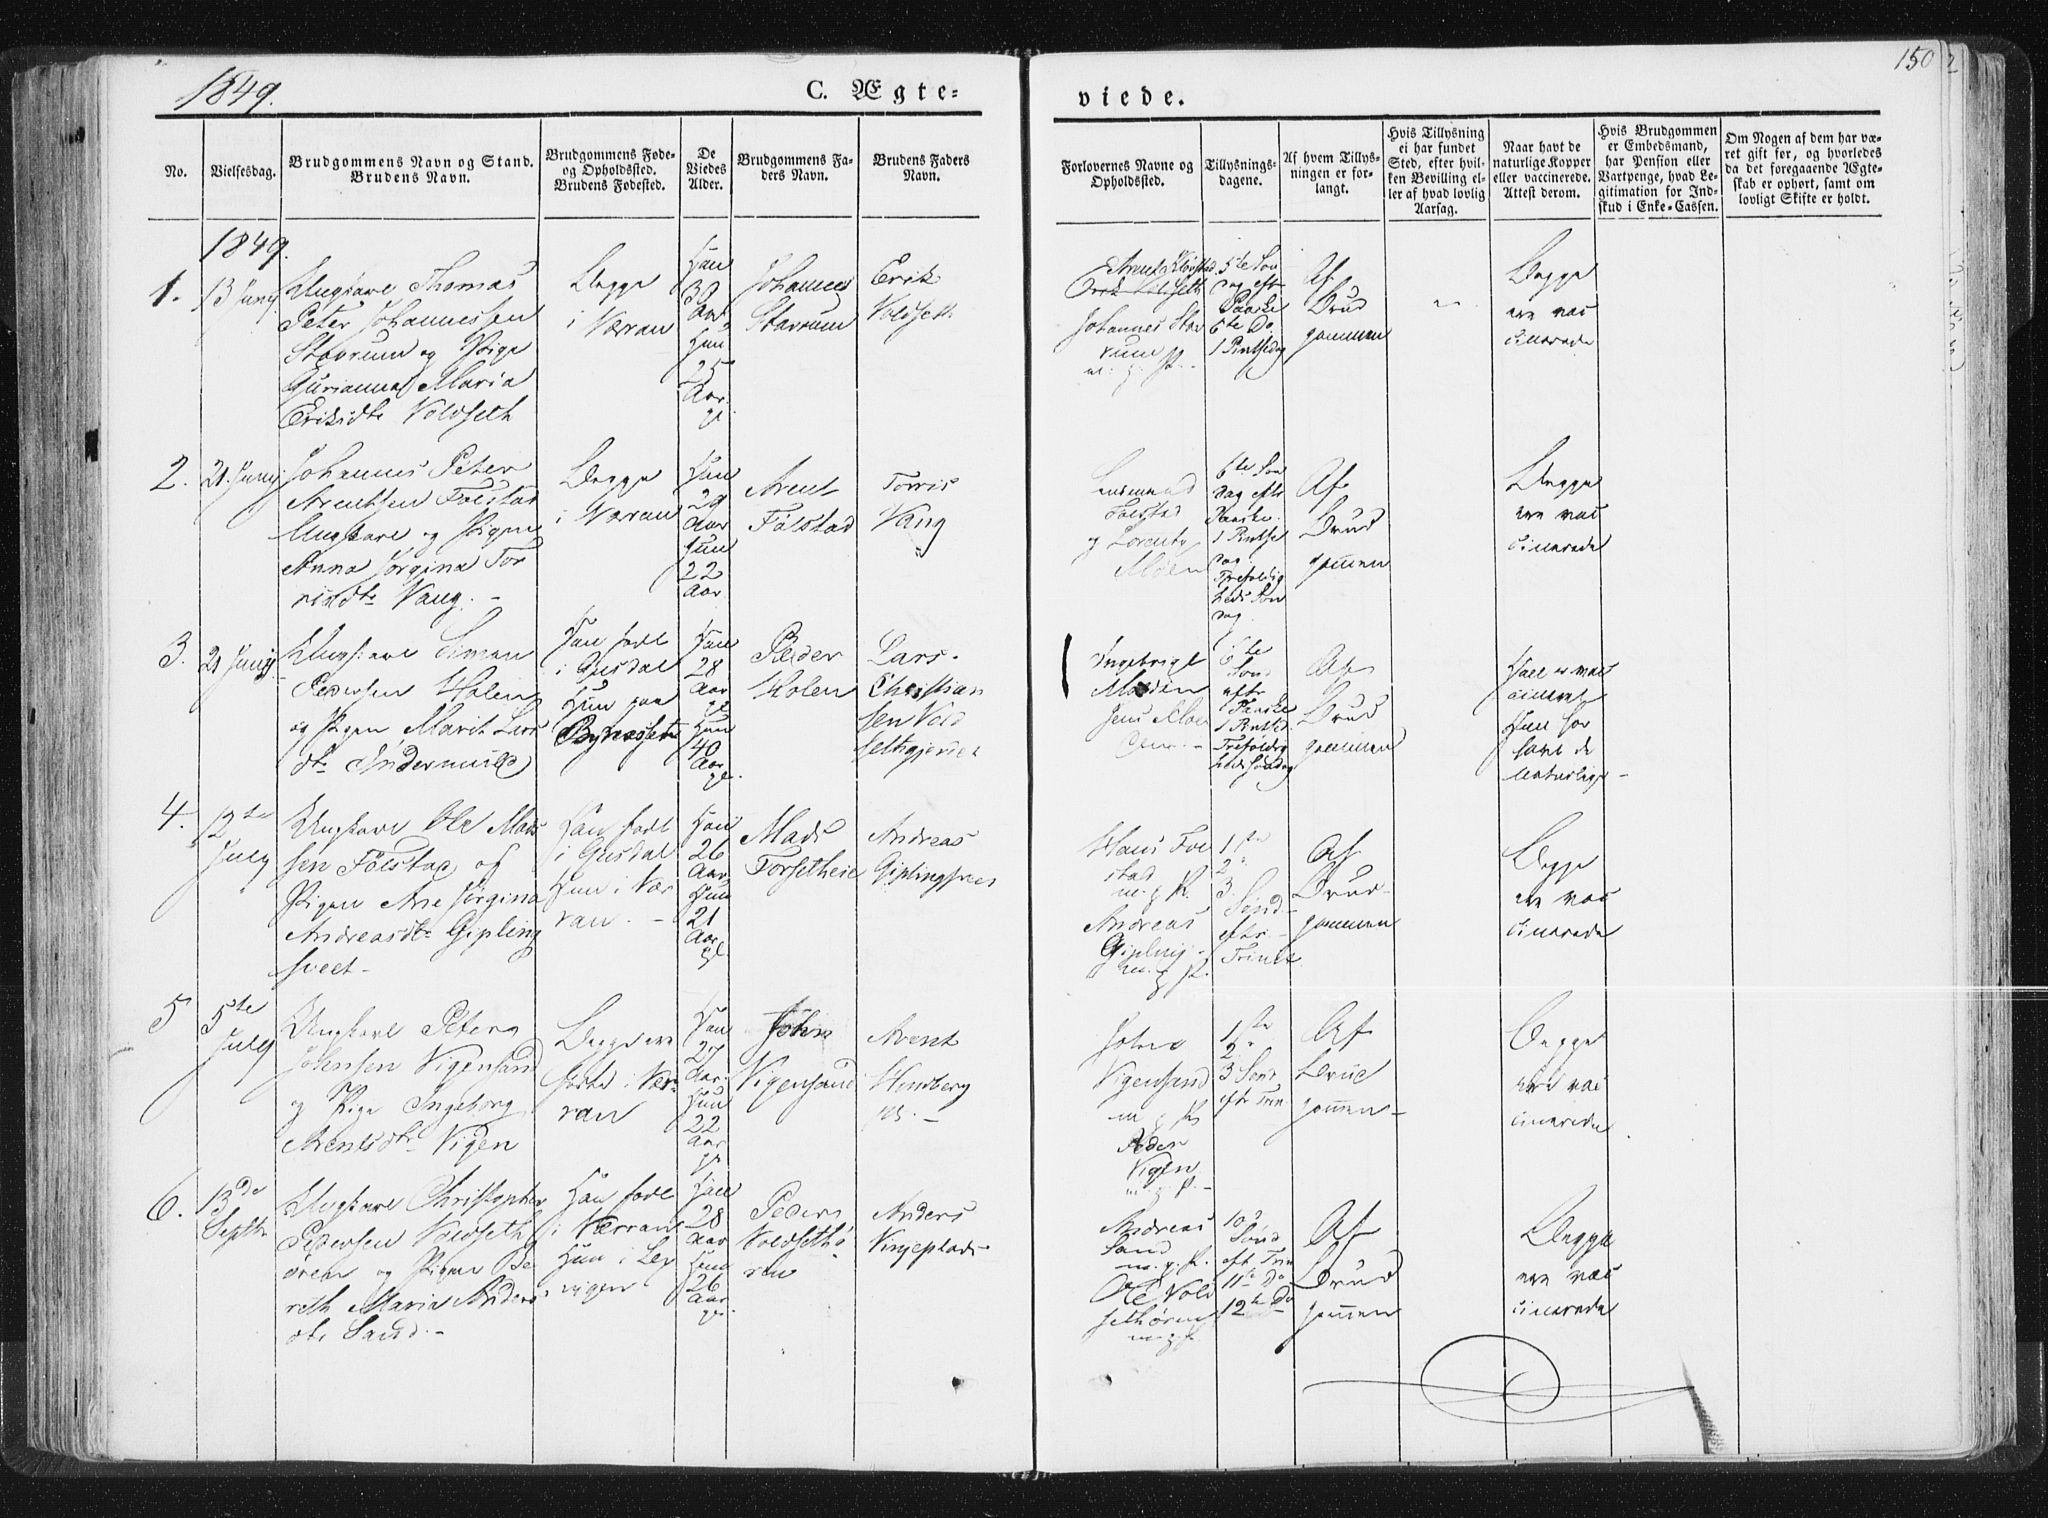 1849.
C. Ægte=
viede.
150
2
No.
Vielsesdag.
Brudgommens Navn og Stand.
Brudens Navn.
Brudgommens Føde=
og Opholdssted.
Brudens Fødested.
De
Viedes
Alder.
Brudgommens Fa-
ders Navn.
Brudens Faders
Navn.
Forlovernes Navne og
Opholdssted.
Tillysnings=
dagene.
Af hvem Tillys-
ningen er for-
langt.
Hvis Tillysning
ei har fundet
Sted, efter hvil-
ken Bevilling el-
ler af hvad lovlig
Aarsag.
Naar havt de
naturlige Kopper
eller vaccinerede.
Attest derom.
Hvis Brudgommen
er Embedsmand,
har Pension eller
Vartpenge, hvad Le-
gitimation for Ind-
skud i Enke=Cassen.
Om Nogen af dem har væ-
ret gift før, og hvorledes
da det foregaaende Ægte-
skab er ophørt, samt om
lovligt Skifte er holdt.
1849.
1.
13 Junij
Ungkarl Thomas
Peter Johannessen
Stavrum og Pige
Gurianna Maria
Eriksdtr Voldseth
Begge
i Værran
Han
30
Aar
Hun
25
Aar
gl.
Johannes
Stavrum
Erik
Voldseth
Arent Kløvstad
Erik Voldseth
Johannes Stav
rum
m. p. P.
5te Søn
dag eftr
Paaske
6te Do
1 Pintsedag
Af
Brud
gommen
Begge
ere vac
cinerede
2.
21 Junij
Johannes Peter
Arentsen Følstad
Ungkarl og Pigen
Anna Jørgina Tor
risdtr Vang. –
Begge
i Værran
Han
29
Aar
Hun
22
Aar.
Arent
Følstad
Torris
Vang
Følstad
og Lorents
Alden
6te Søn
dag eftr
Paaske.
1 Pintse
dag
Trefoldig
heds Søn
dag.
Af
Brud
gommen
Begge
ere vac
cinerede
3.
21 Junij
Ungkarl Simon
Pedersen Holen
og Pigen Marit Lars
dtr Indermill
Han født
i Gusdal
Hun paa
Bynæsset
Han
28
Aar
gl
Hun
40
Aar
gl.
Peder
Holen
Lars
Christian
sen Vold
sethgjerdet
Ingebrigt
Malden
Jens Moe
6te
Sønd
eftr
Paaske
1 Pintsed.
Trefoldig
heds Søndag
Af
Brud
gommen
Han er vac
cineret
Hun har
havt de
naturlige –
4.
12te
July
Ungkarl Ole Mads
sen Følstad og
Pigen Ane Jørgina
Andreasdtr Gipling
sveet –
Han født
i Gusdal
Hun i Vær
ran. –
Han
26
Aar
Hun
21
Aar
gl.
Mads
Forsetheie
Andreas
Giplingsvee
Hans Føl
stad
m. p. P.
Andreas
Gipling
m. p. P.
1ste
2
3.
Sønd
eftr
Trinit
Af
Brud-
gommen
Begge
ere vac
cinerede
5
5te
July
Ungkarl Peter
Johnsen Vigensand
og Pige Ingeborg
Arentsdtr Vigen
Begge ere
fødte i Vær
ran
Han
27
Aar.
Hun
22
Aar
gl.
John
Vigensand
Arent
Hindberg
Vigensand
m p P.
Peder
Vigen
m. p. P. –
1ste
2
3 Sønd
eftr Trin
Af
Brud
gommen –
Begge
ere vac
cinerede
6.
13de
Septbr
Ungkarl Christopher
Pedersen Voldseth
ören og Pigen Be
reth Maria Anders
dtr Sand. –
Han født
i Værran
Hun i Lex
vigen
Han
28
Aar
Hun
26
Aar
gl.
Peder
Voldsethö
ren
Anders
Vinjeplads
Andreas
Sand
m. p. P.
Ole Vold
sethören
m. p. P.
10d
Sønd
eft Trin
11te Do
12te Do
Af
Brud
gommen
Begge
ere vac
cinerede